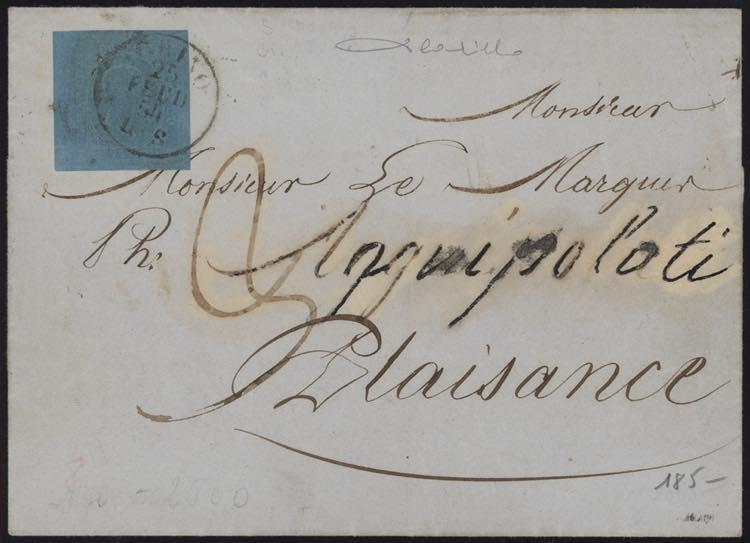 TORINO
25
FEBB
54
L S
Monsieur
Monsieur Le Marquis
Ph. Anguissolati
3
Plaisance
185-